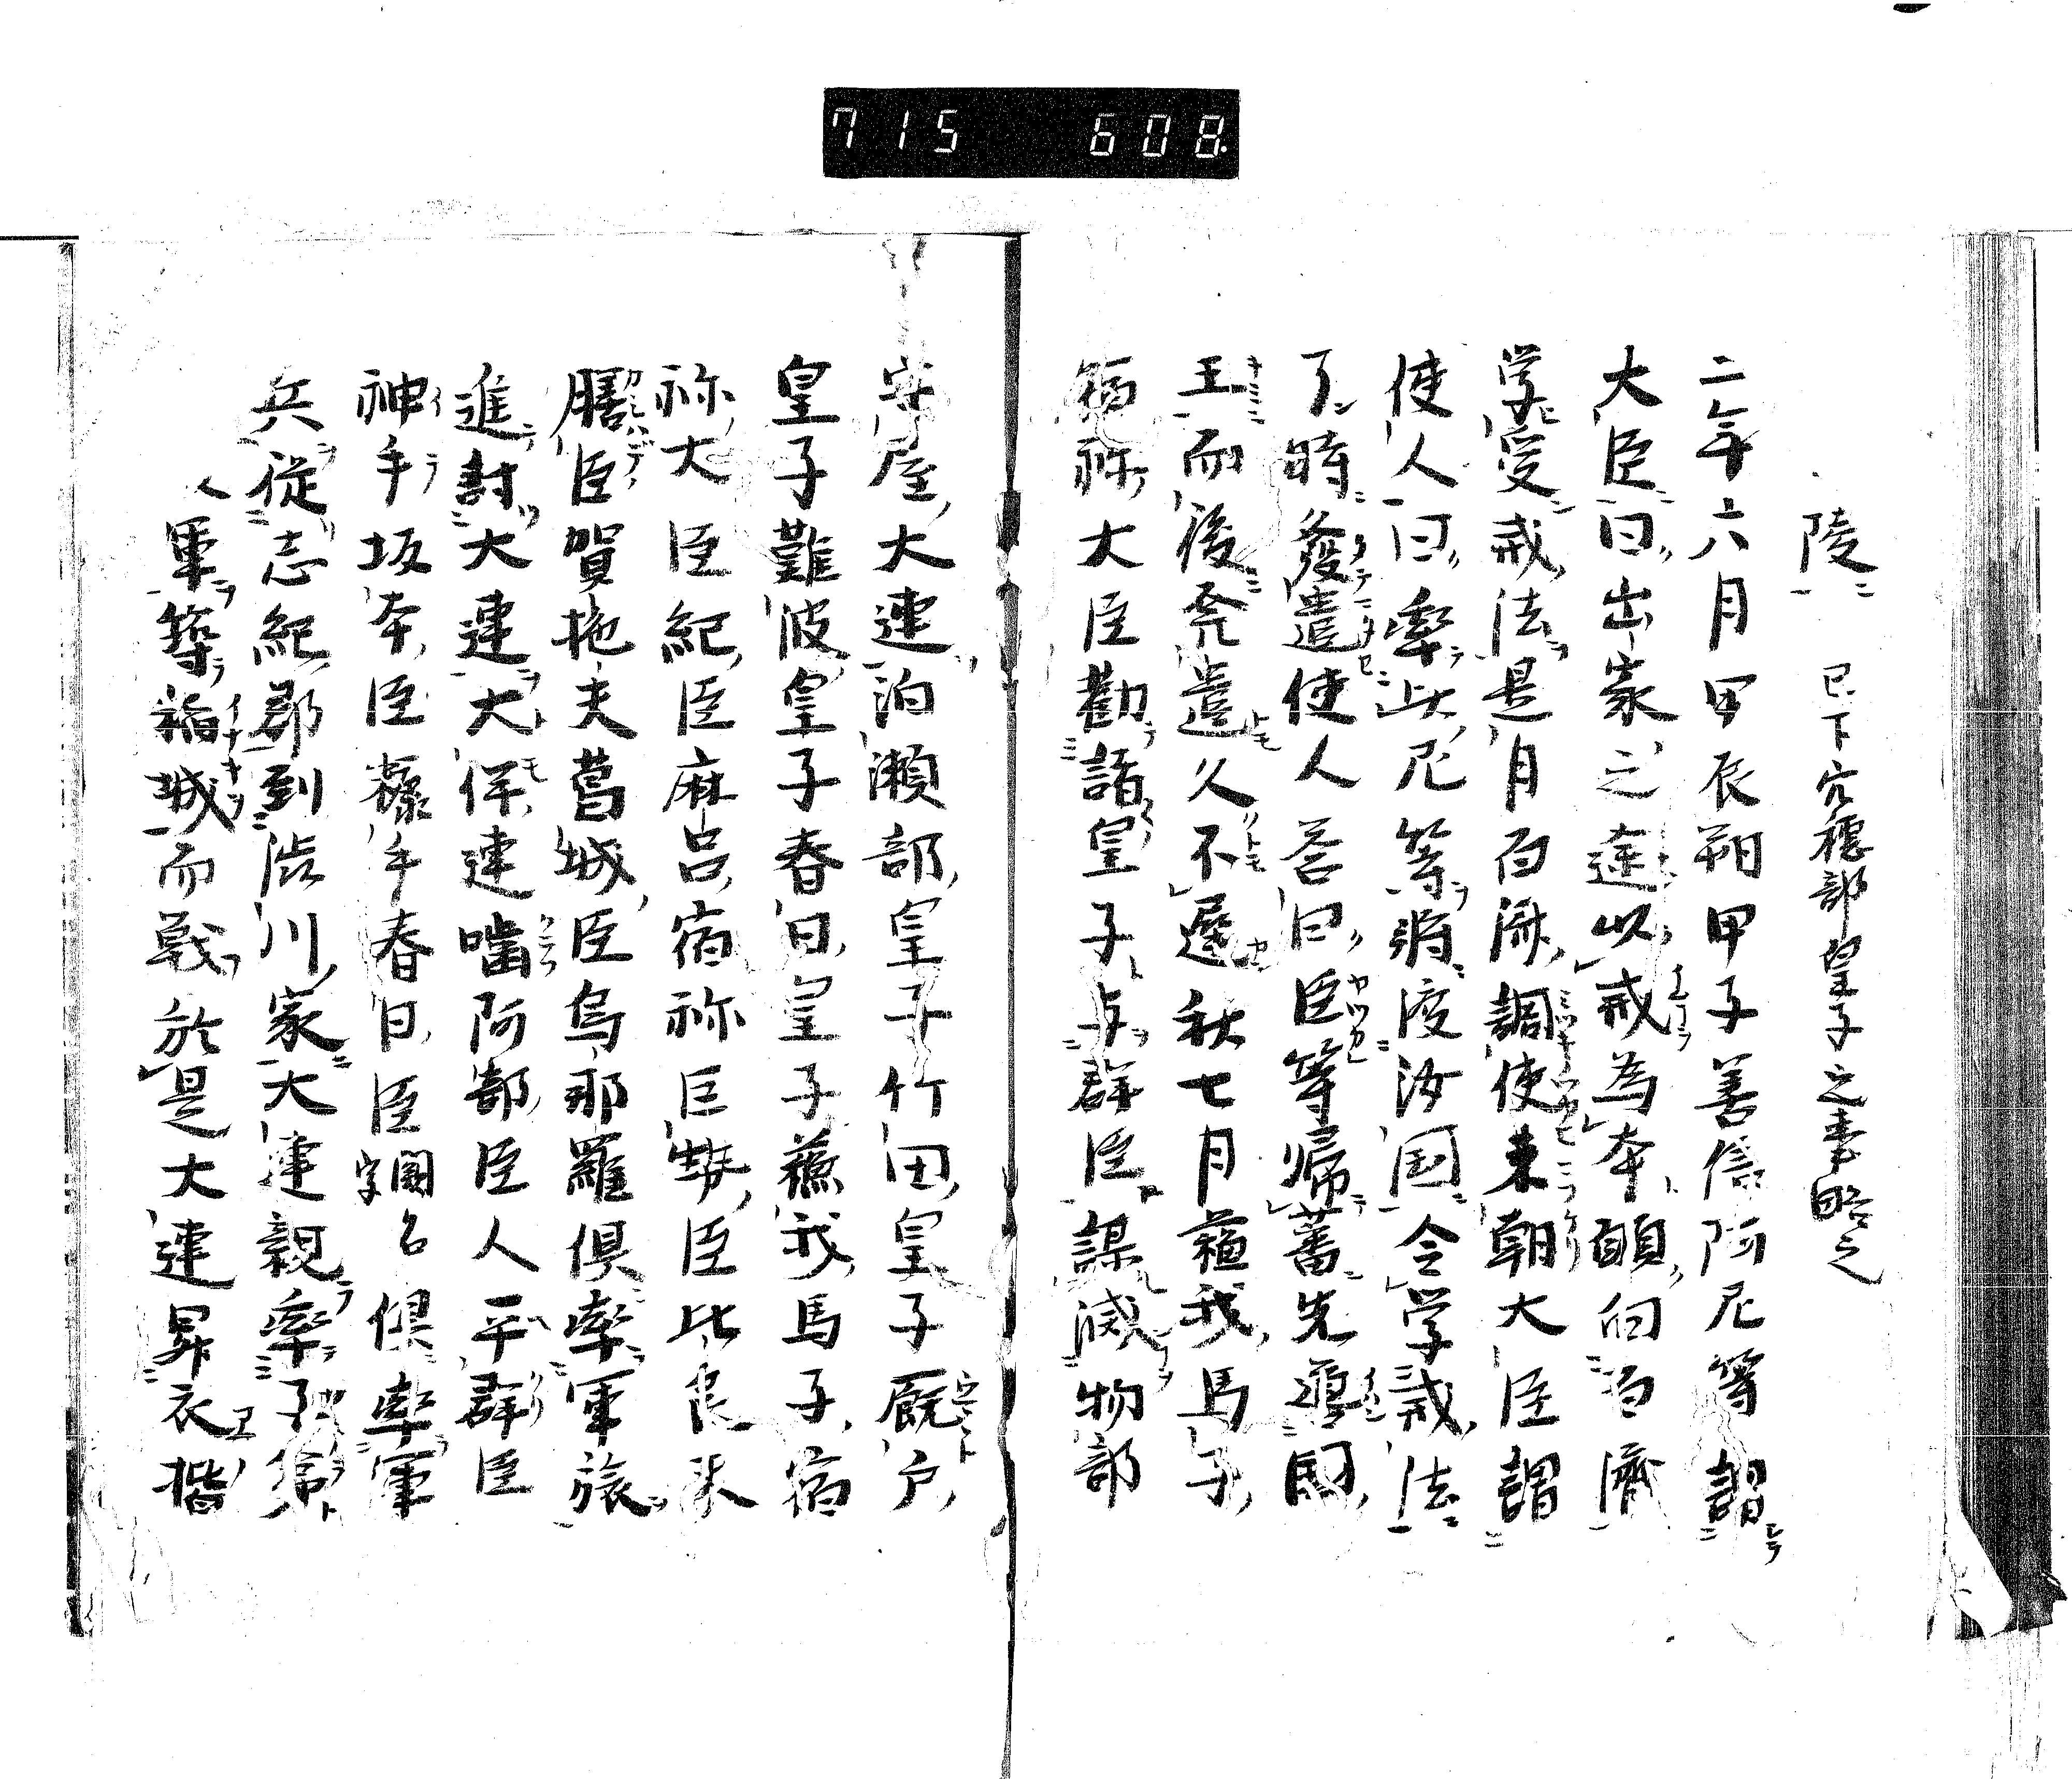 715 608
陵 已下穴穂部皇子之事略之
二年六月甲辰朔甲子善信阿尼等謂
大臣曰出家之途以戒為本願向百済
学受戒法是月百済調使来朝大臣謂
使人曰率此尼等将渡汝国令学戒法
了時發遣使人答曰臣等帰蕃先噵国
王而後発遣久不遅秋七月蘇我馬子
宿祢大臣勸諸皇子与群臣謀滅物部
守屋大連泊瀬部皇子竹田皇子厩戸
皇子難波皇子春日皇子蘇我馬子宿
祢大臣紀臣麻呂宿祢巨勢臣比良夫
膳臣賀拖夫葛城臣烏那羅倶率軍旅
進討大連大伴連噛阿部臣人平群臣
神手坂本臣糠手春日臣闕名字倶率軍
兵従志紀郡到渋川家大連親率子弟
軍築稲城而戦於是大連昇衣揩